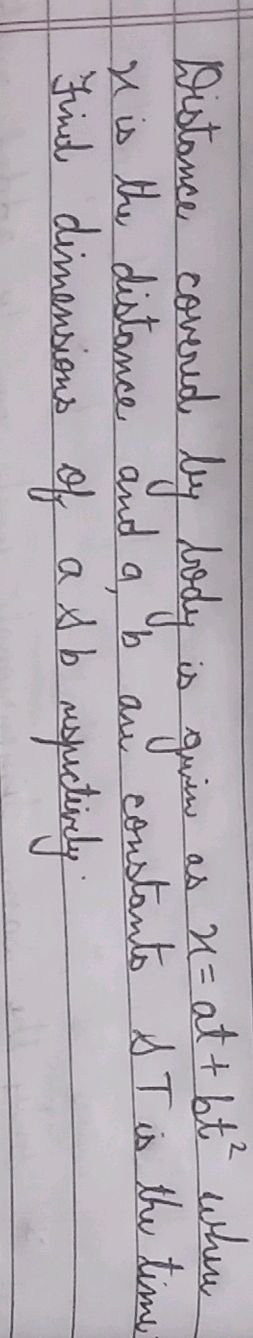 Distance covered by body is given as x = at + bt² where
x is the distance and a, b are constants & T is the time
Find dimensions of a & b respectively.